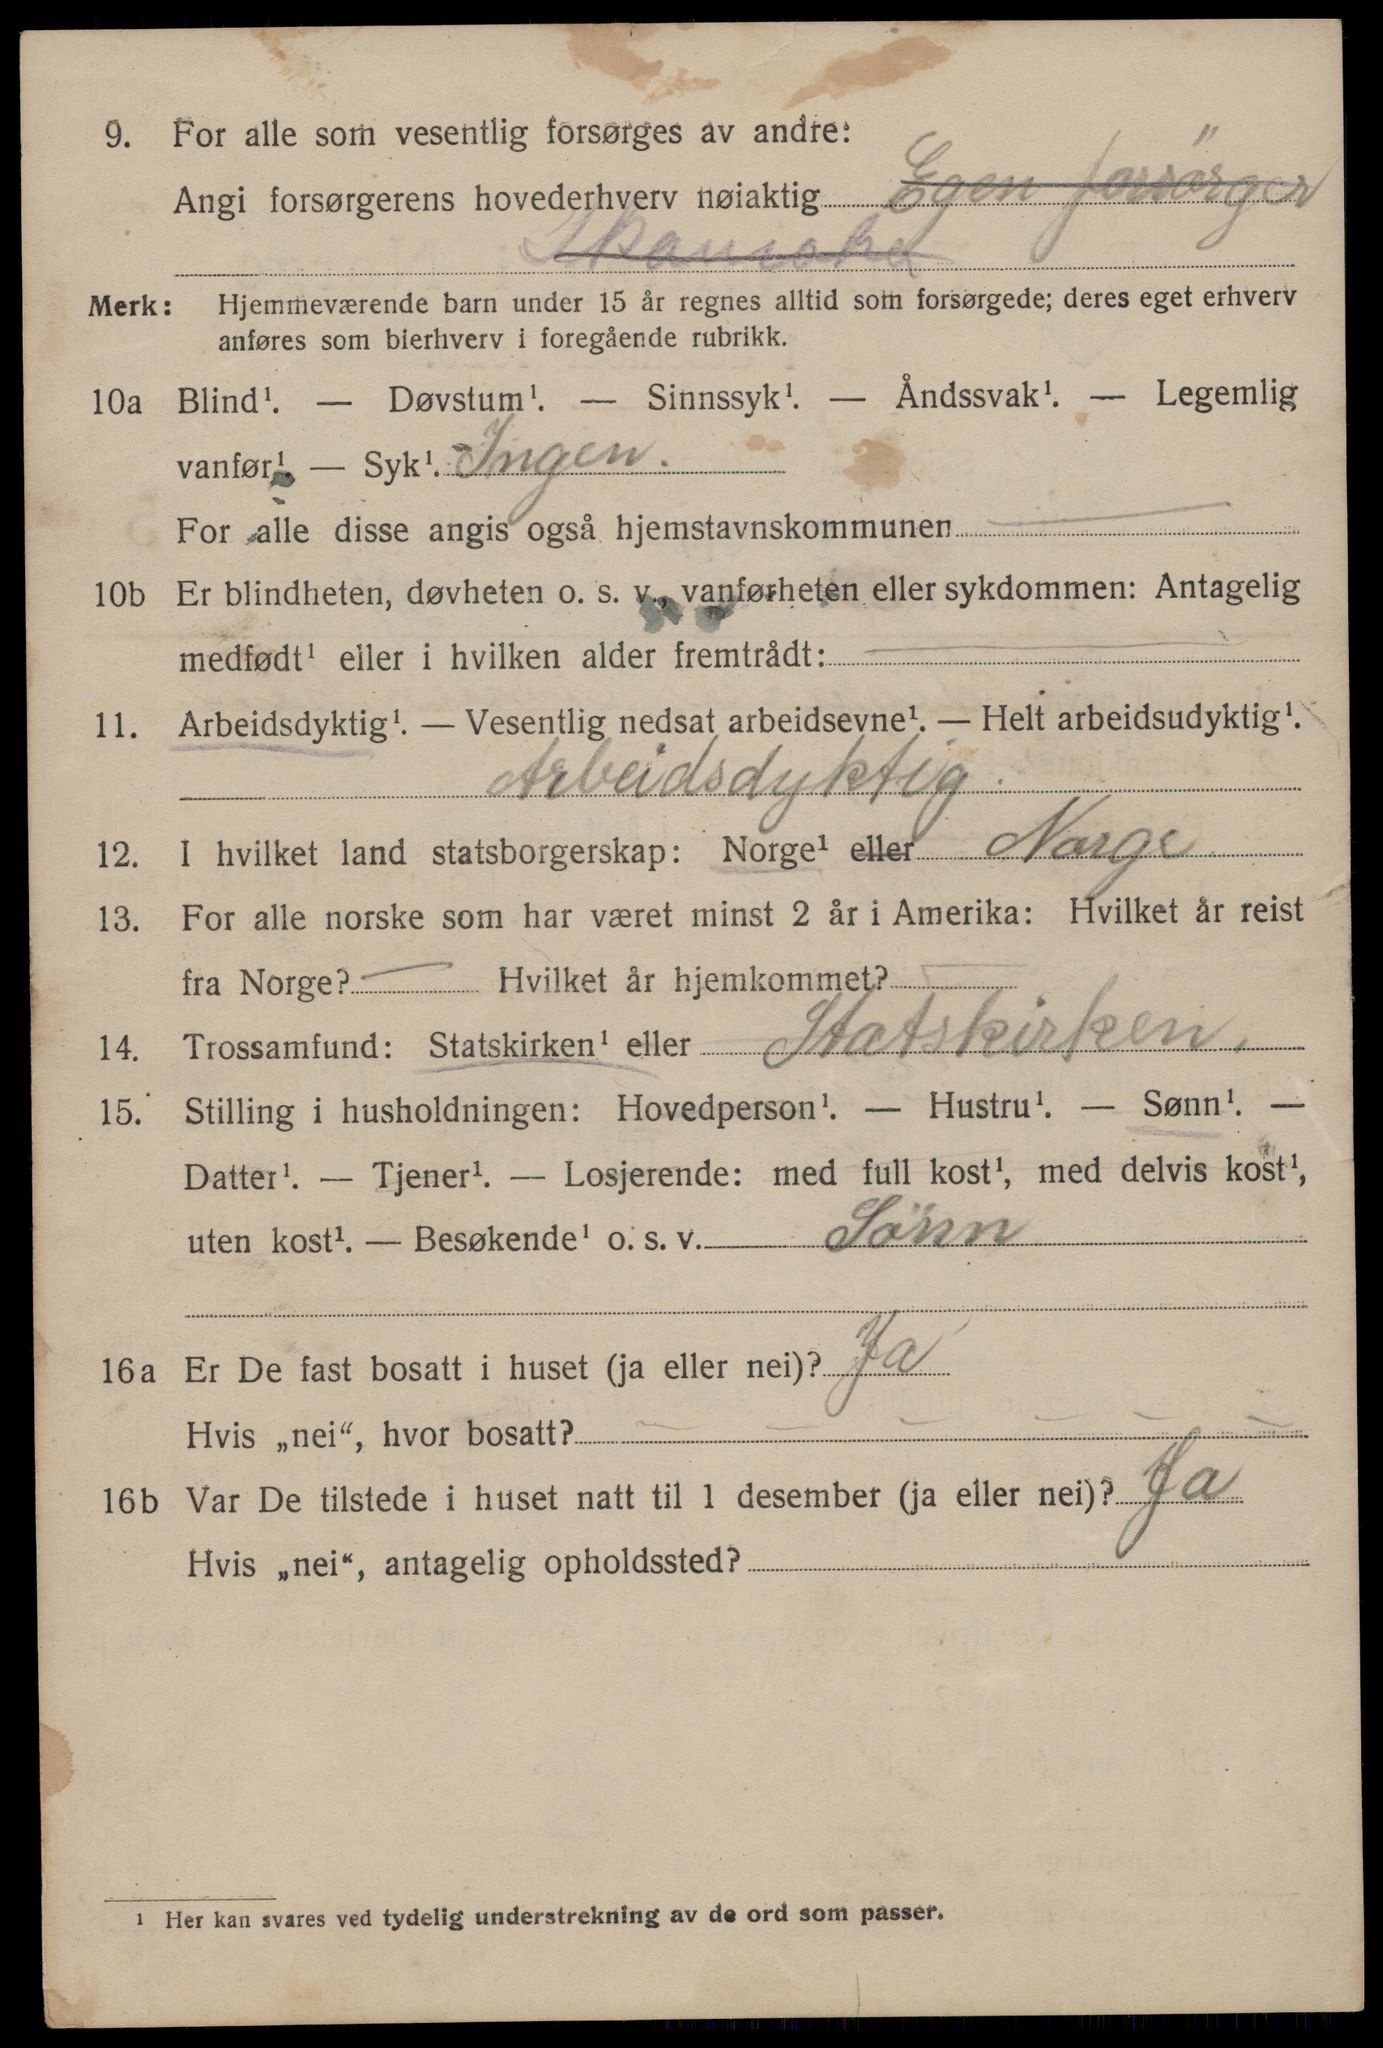 9. For alle som vesentlig forsørges av andre:
Angi forsørgerens hovederhverv nøiaktig Egen forsörger
Merk: Hjemmeværende barn under 15 år regnes alltid som forsørgede; deres eget erhverv
anføres som bierhverv i foregående rubrikk.
10a Blind¹. — Døvstum¹. — Sinnssyk¹. — Åndssvak¹. — Legemlig
vanfør¹. — Syk¹. Ingen.
For alle disse angis også hjemstavnskommunen —
10b Er blindheten, døvheten o. s. v., vanførheten eller sykdommen: Antagelig
medfødt¹ eller i hvilken alder fremtrådt: —
11. Arbeidsdyktig¹. — Vesentlig nedsat arbeidsevne¹. — Helt arbeidsudyktig¹.
Arbeidsdyktig.
12. I hvilket land statsborgerskap: Norge¹ eller Norge
13. For alle norske som har været minst 2 år i Amerika: Hvilket år reist
fra Norge? — Hvilket år hjemkommet? —
14. Trossamfund: Statskirken¹ eller Statskirken.
15. Stilling i husholdningen: Hovedperson¹. — Hustru¹. — Sønn¹. —
Datter¹. — Tjener¹. — Losjerende: med full kost¹, med delvis kost¹,
uten kost¹. — Besøkende¹ o. s. v. Sönn
16a Er De fast bosatt i huset (ja eller nei)? Ja
Hvis „nei“, hvor bosatt? — — — — — —
16b Var De tilstede i huset natt til 1 desember (ja eller nei)? Ja
Hvis „nei“, antagelig opholdssted?
¹ Her kan svares ved tydelig understrekning av de ord som passer.